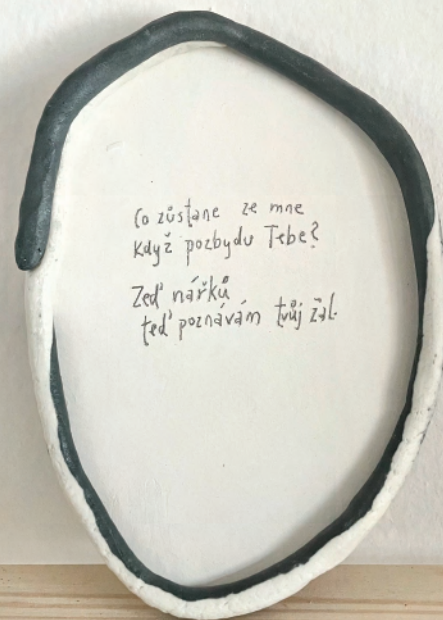 Co zůstane ze mne
Když pozbydu Tebe?
Zeď nářků
teď poznávám tvůj žal.